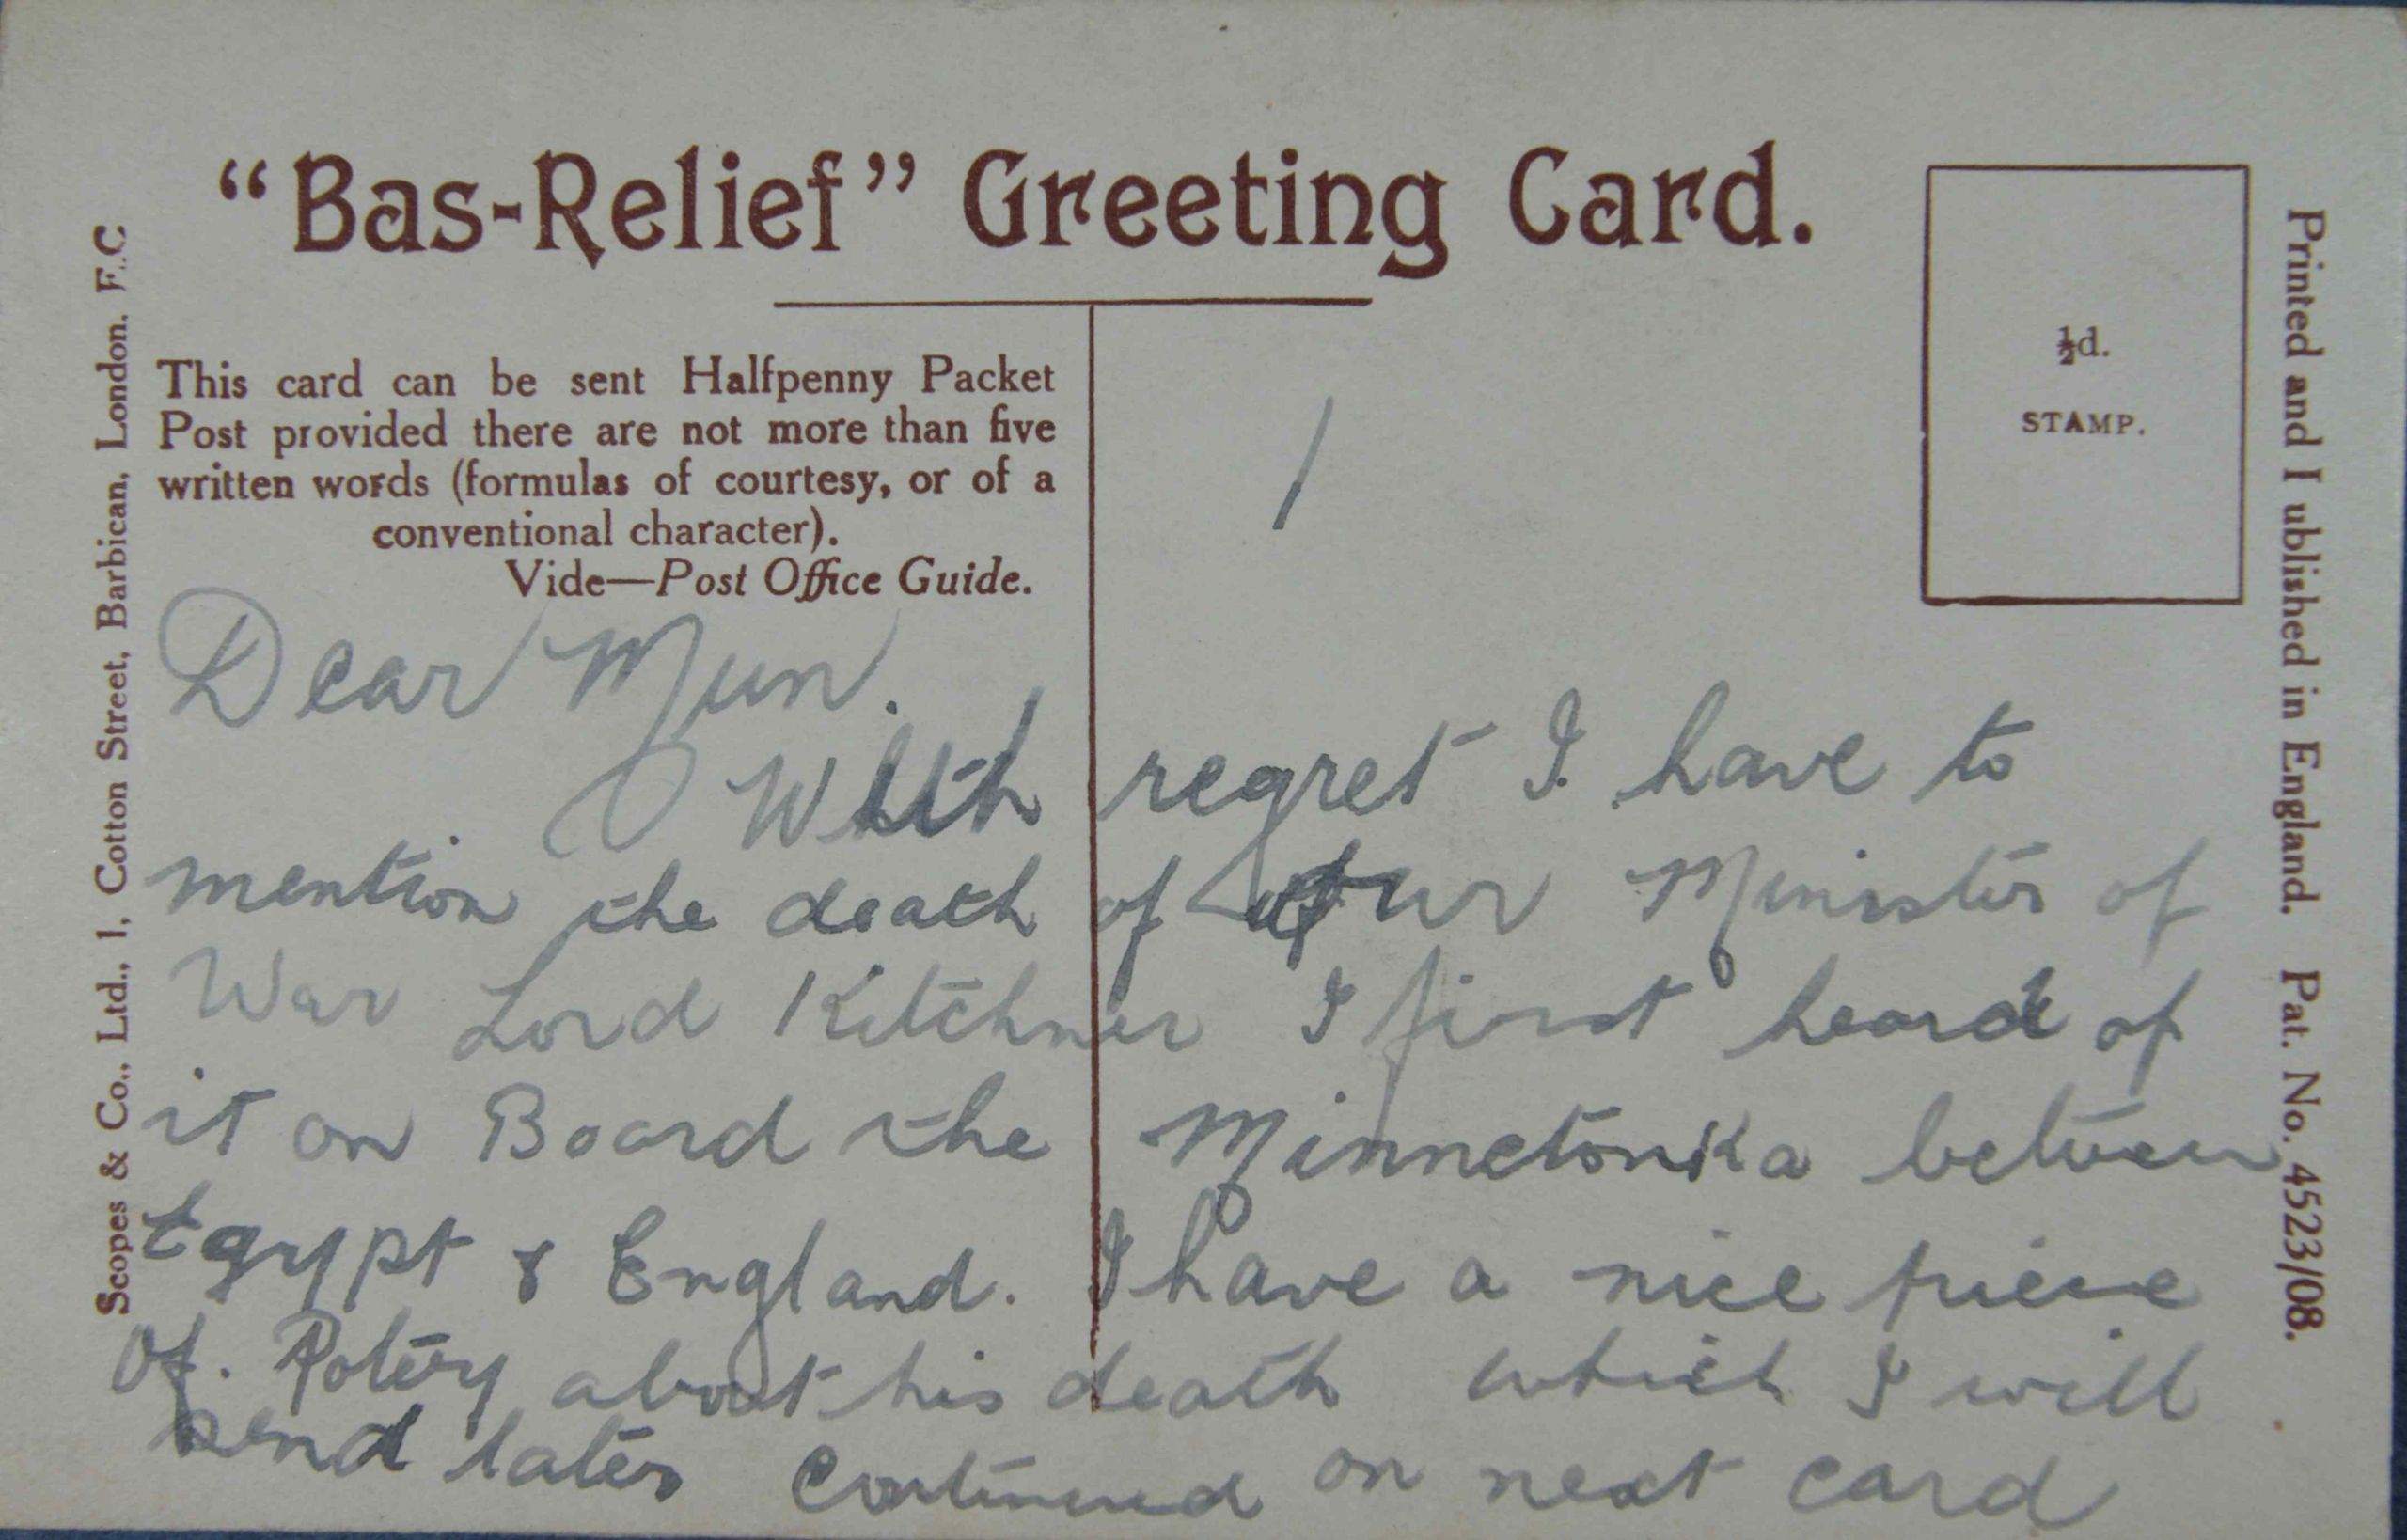 "Bas-Relief" Greeting Card.
This card can be sent Halfpenny Packet
Post provided there are not more than five
written words (formulas of courtesy, or of a
conventional character).
Vide—Post Office Guide.
1
½d.
STAMP.
Dear Mum.
With regret I have to
mention the death of our Minister of
War Lord Kitchner I first heard of
it on Board the Minnetonka between
Egypt & England. I have a nice piece
of. Potery about his death which I will
send later continued on next card
Scopes & Co., Ltd., 1, Cotton Street, Barbican, London. E.C
Printed and Published in England. Pat. No. 4523/08.